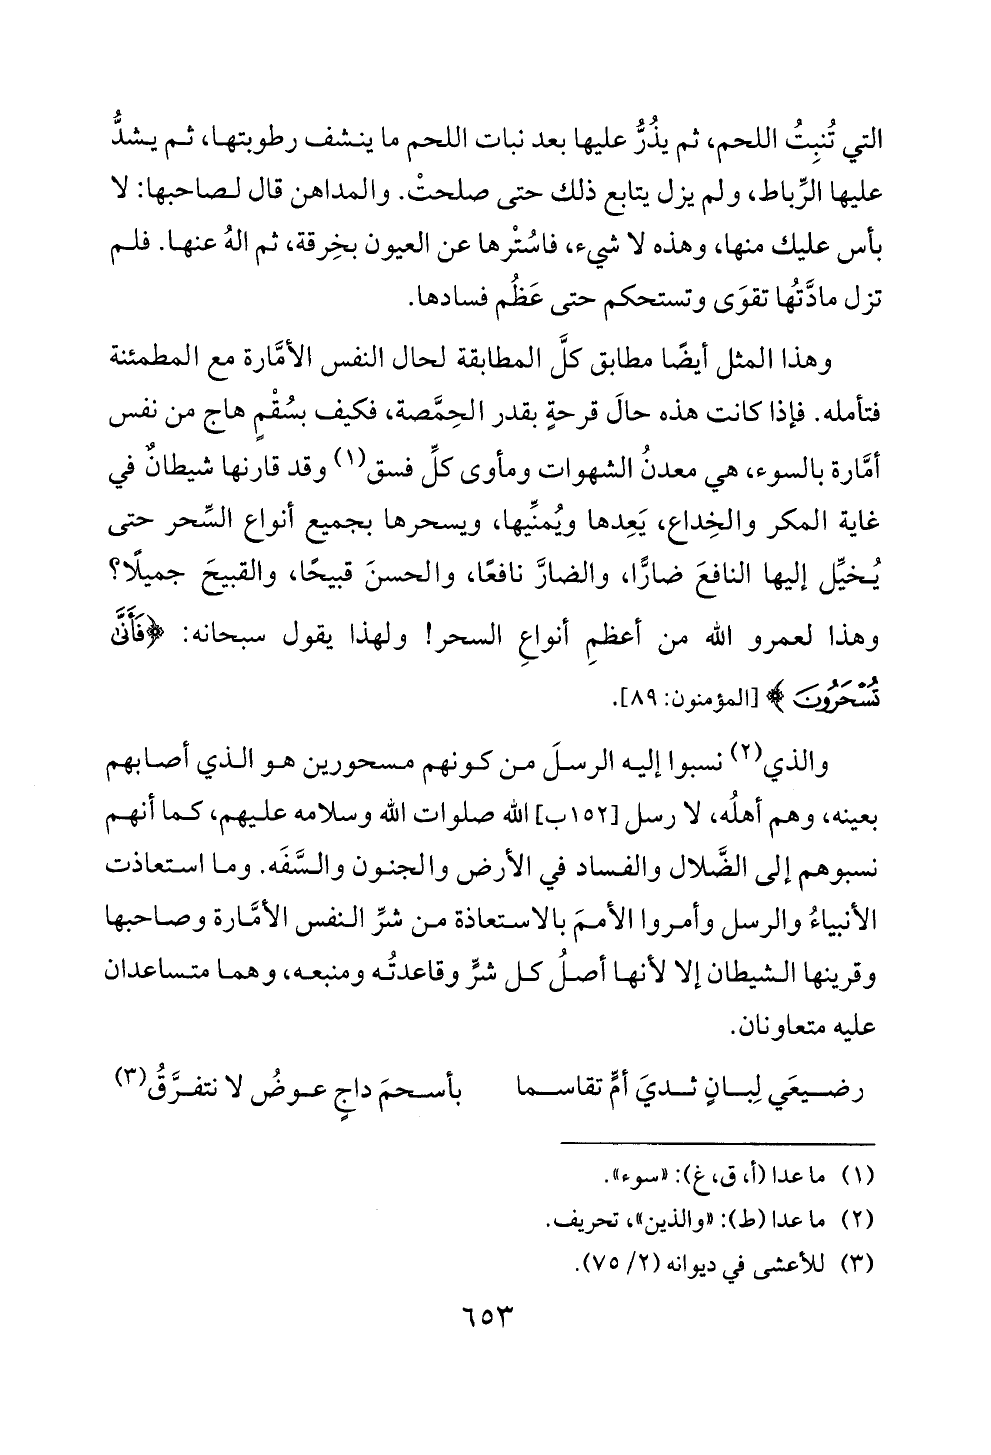 التي تُنبِتُ اللحم، ثم يذُرُّ عليها بعد نبات اللحم ما ينشف رطوبتها، ثم يشدُّ
عليها الرِّباط، ولم يزل يتابع ذلك حتى صلحتْ. والمداهن قال لصاحبها: لا
بأس عليك منها، وهذه لا شيء، فاسْتُرها عن العيون بخِرقة، ثم الهُ عنها. فلم
تزل مادَّتُها تقوَى وتستحكم حتى عَظُم فسادها.
وهذا المثل أيضًا مطابق كلَّ المطابقة لحال النفس الأمَّارة مع المطمئنة
فتأمله. فإذا كانت هذه حالَ قرحةٍ بقدر الحِمَّصة، فكيف بسُقْمٍ هاج من نفس
أمَّارة بالسوء، هي معدنُ الشهوات ومأوى كلِّ فسق(١) وقد قارنها شيطانٌ في
غاية المكر والخِداع، يَعِدها ويُمنِّيها، ويسحرها بجميع أنواع السِّحر حتى
يُخيِّل إليها النافعَ ضارًّا، والضارَّ نافعًا، والحسنَ قبيحًا، والقبيحَ جميلًا؟
وهذا لعمرو الله من أعظمِ أنواعِ السحر! ولهذا يقول سبحانه: ﴿فَأَنَّىٰ
تُسْحَرُونَ﴾ [المؤمنون: ٨٩].
والذي(٢) نسبوا إليه الرسلَ من كونهم مسحورين هو الذي أصابهم
بعينه، وهم أهلُه، لا رسل [١٥٢ب] الله صلوات الله وسلامه عليهم، كما أنهم
نسبوهم إلى الضَّلال والفساد في الأرض والجنون والسَّفَه. وما استعاذت
الأنبياءُ والرسل وأمروا الأممَ بالاستعاذة من شرِّ النفس الأمَّارة وصاحبها
وقرينها الشيطان إلا لأنها أصلُ كل شرٍّ وقاعدتُه ومنبعه، وهما متساعدان
عليه متعاونان.
رضيعَي لِبانٍ ثديَ أمٍّ تقاسما بأسحمَ داجٍ عوضُ لا نتفرَّقُ(٣)
(١) ما عدا (أ، ق، غ): «سوء».
(٢) ما عدا (ط): «والذين»، تحريف.
(٣) للأعشى في ديوانه (٢/ ٧٥).
٦٥٣